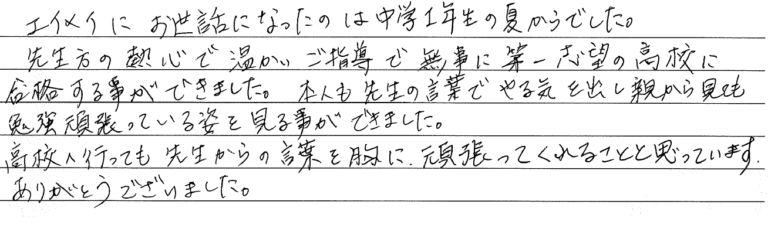 エイメイに お世話になったのは中学1年生の夏からでした。
先生方の熱心で温かいご指導で無事に第一志望の高校に
合格する事ができました。 本人も先生の言葉でやる気を出し親から見ても
勉強頑張っている姿を見る事ができました。
高校へ行っても先生からの言葉を胸に、頑張ってくれることと思っています。
ありがとうございました。